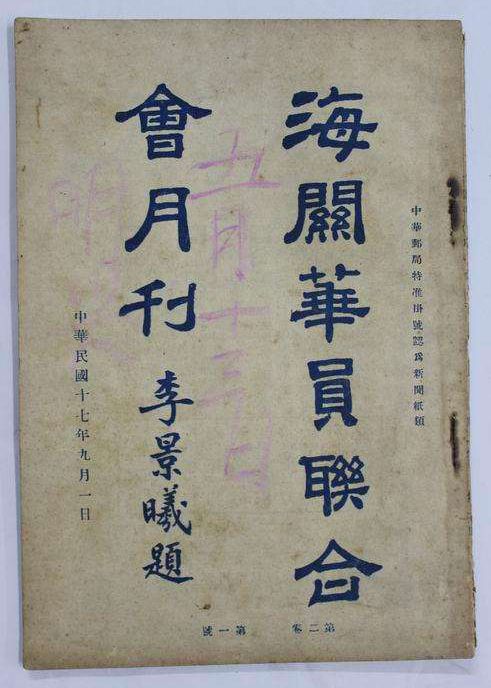 中華郵局特准掛號認爲新聞紙類
海關華員聯合
會月刊
李景曦題
中華民國十七年九月一日
第二卷 第一號
五月十三日